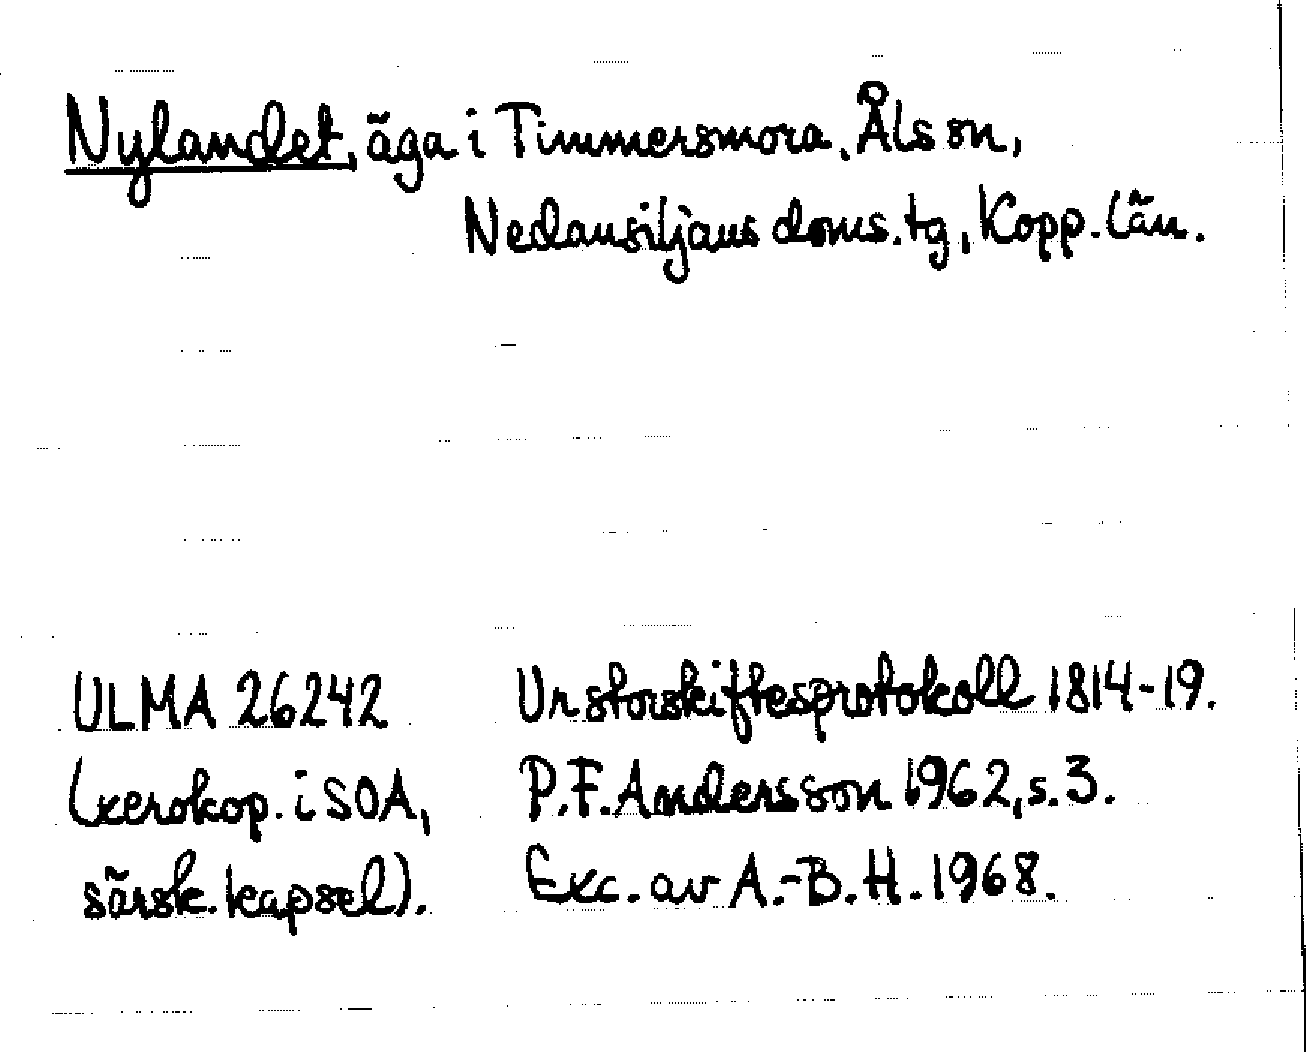 Nylandet, äga i Timmersmora, Åls sn,
Nedansiljans doms.tg, Kopp. län.
ULMA 26242
(xerokop. i SOA,
särsk. kapsel).
Ur storskiftesprotokoll 1814-19.
P.F. Andersson 1962, s. 3.
Exc. av A.-B. H. 1968.